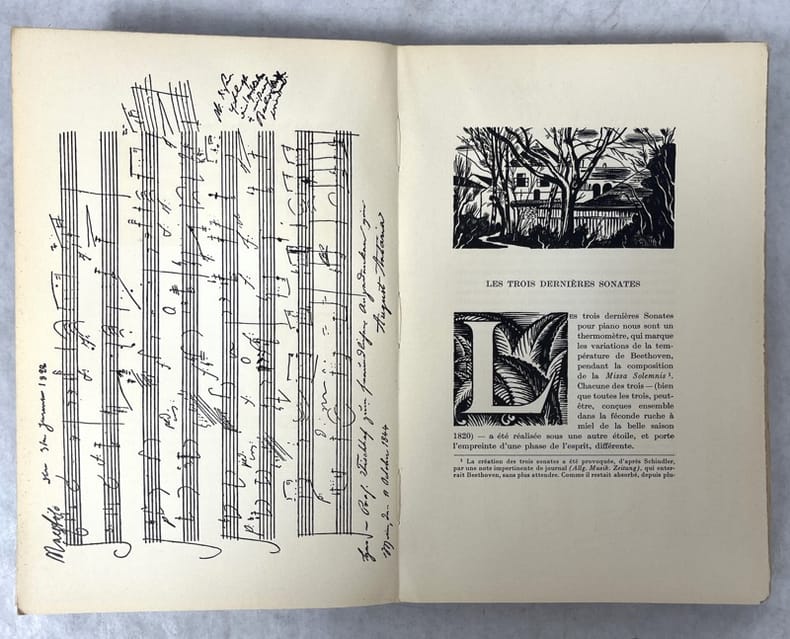 Maestoso
Januar 1822
Prof Fischhof zum freundlichen Angedenken von
August Artaria
Wien den October 1844
LES TROIS DERNIÈRES SONATES
LES trois dernières Sonates
pour piano nous sont un
thermomètre, qui marque
les variations de la tem-
pérature de Beethoven,
pendant la composition
de la Missa Solemnis ¹.
Chacune des trois — (bien
que toutes les trois, peut-
être, conçues ensemble
dans la féconde ruche à
miel de la belle saison
1820) — a été réalisée sous une autre étoile, et porte
l'empreinte d'une phase de l'esprit, différente.
¹ La création des trois sonates a été provoquée, d'après Schindler,
par une note impertinente de journal (Allg. Musik. Zeitung), qui enter-
rait Beethoven, sans plus attendre. Comme il restait absorbé, depuis plu-